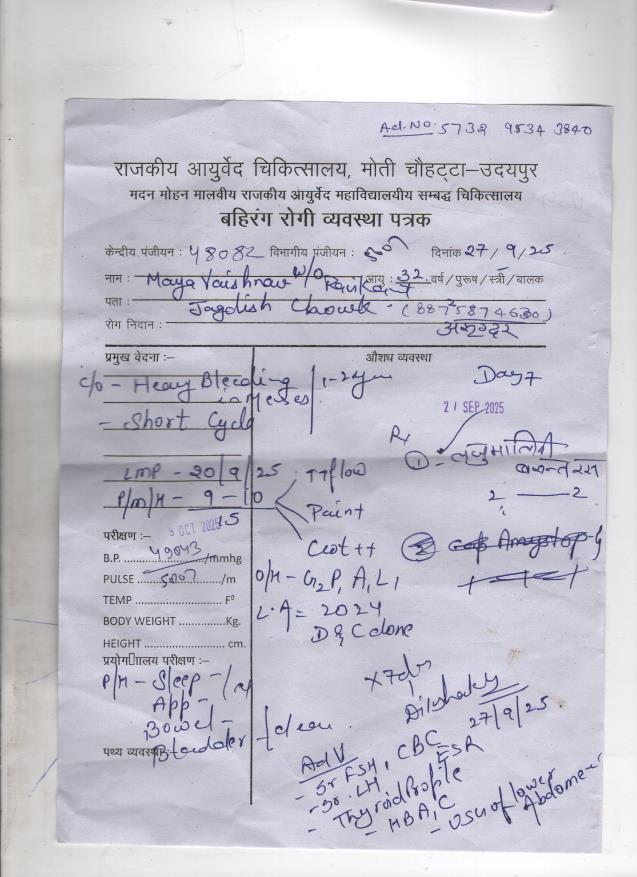 Ad.NO. 5732 9534 3840
राजकीय आयुर्वेद चिकित्सालय, मोती चौहट्टा–उदयपुर
मदन मोहन मालवीय राजकीय आयुर्वेद महाविद्यालयीय सम्बद्ध चिकित्सालय
बहिरंग रोगी व्यवस्था पत्रक
केन्द्रीय पंजीयन : 48082 विभागीय पंजीयन : दिनांक 27/9/25
नाम : Maya Vaishnav W/O आयु : 32 वर्ष/पुरूष/स्त्री/बालक
पता : Jagdish Chowk
रोग निदान : असृग्दर
प्रमुख वेदना :– औशध व्यवस्था
c/o - Heavy Bleeding in Menses / 1-2 Day 7
21 SEP 2025
- Short Cycle
Rx
① - लघुमालिनी बसन्त रस
LMP - 20/9/25 flow
2 — 2
P/M/H - 9 - 10 Pain +
15
Clot ++
परीक्षण :–
9 OCT 2025
B.P. 49043 /mmhg
PULSE /m
O/H - G2 P, A, L,
TEMP F°
L.A = 2024
BODY WEIGHT Kg.
D & C done
HEIGHT cm.
प्रयोग ालय परीक्षण :–
x7d
P/H - Sleep -
App -
27/9/25
Bowel -
Bladder - clear
पथ्य व्यवस्था
Adv
- Sr FSH, CBC ESR
- Sr. LH
- Thyroid Profile
- HBA1C - USG of lower Abdomen